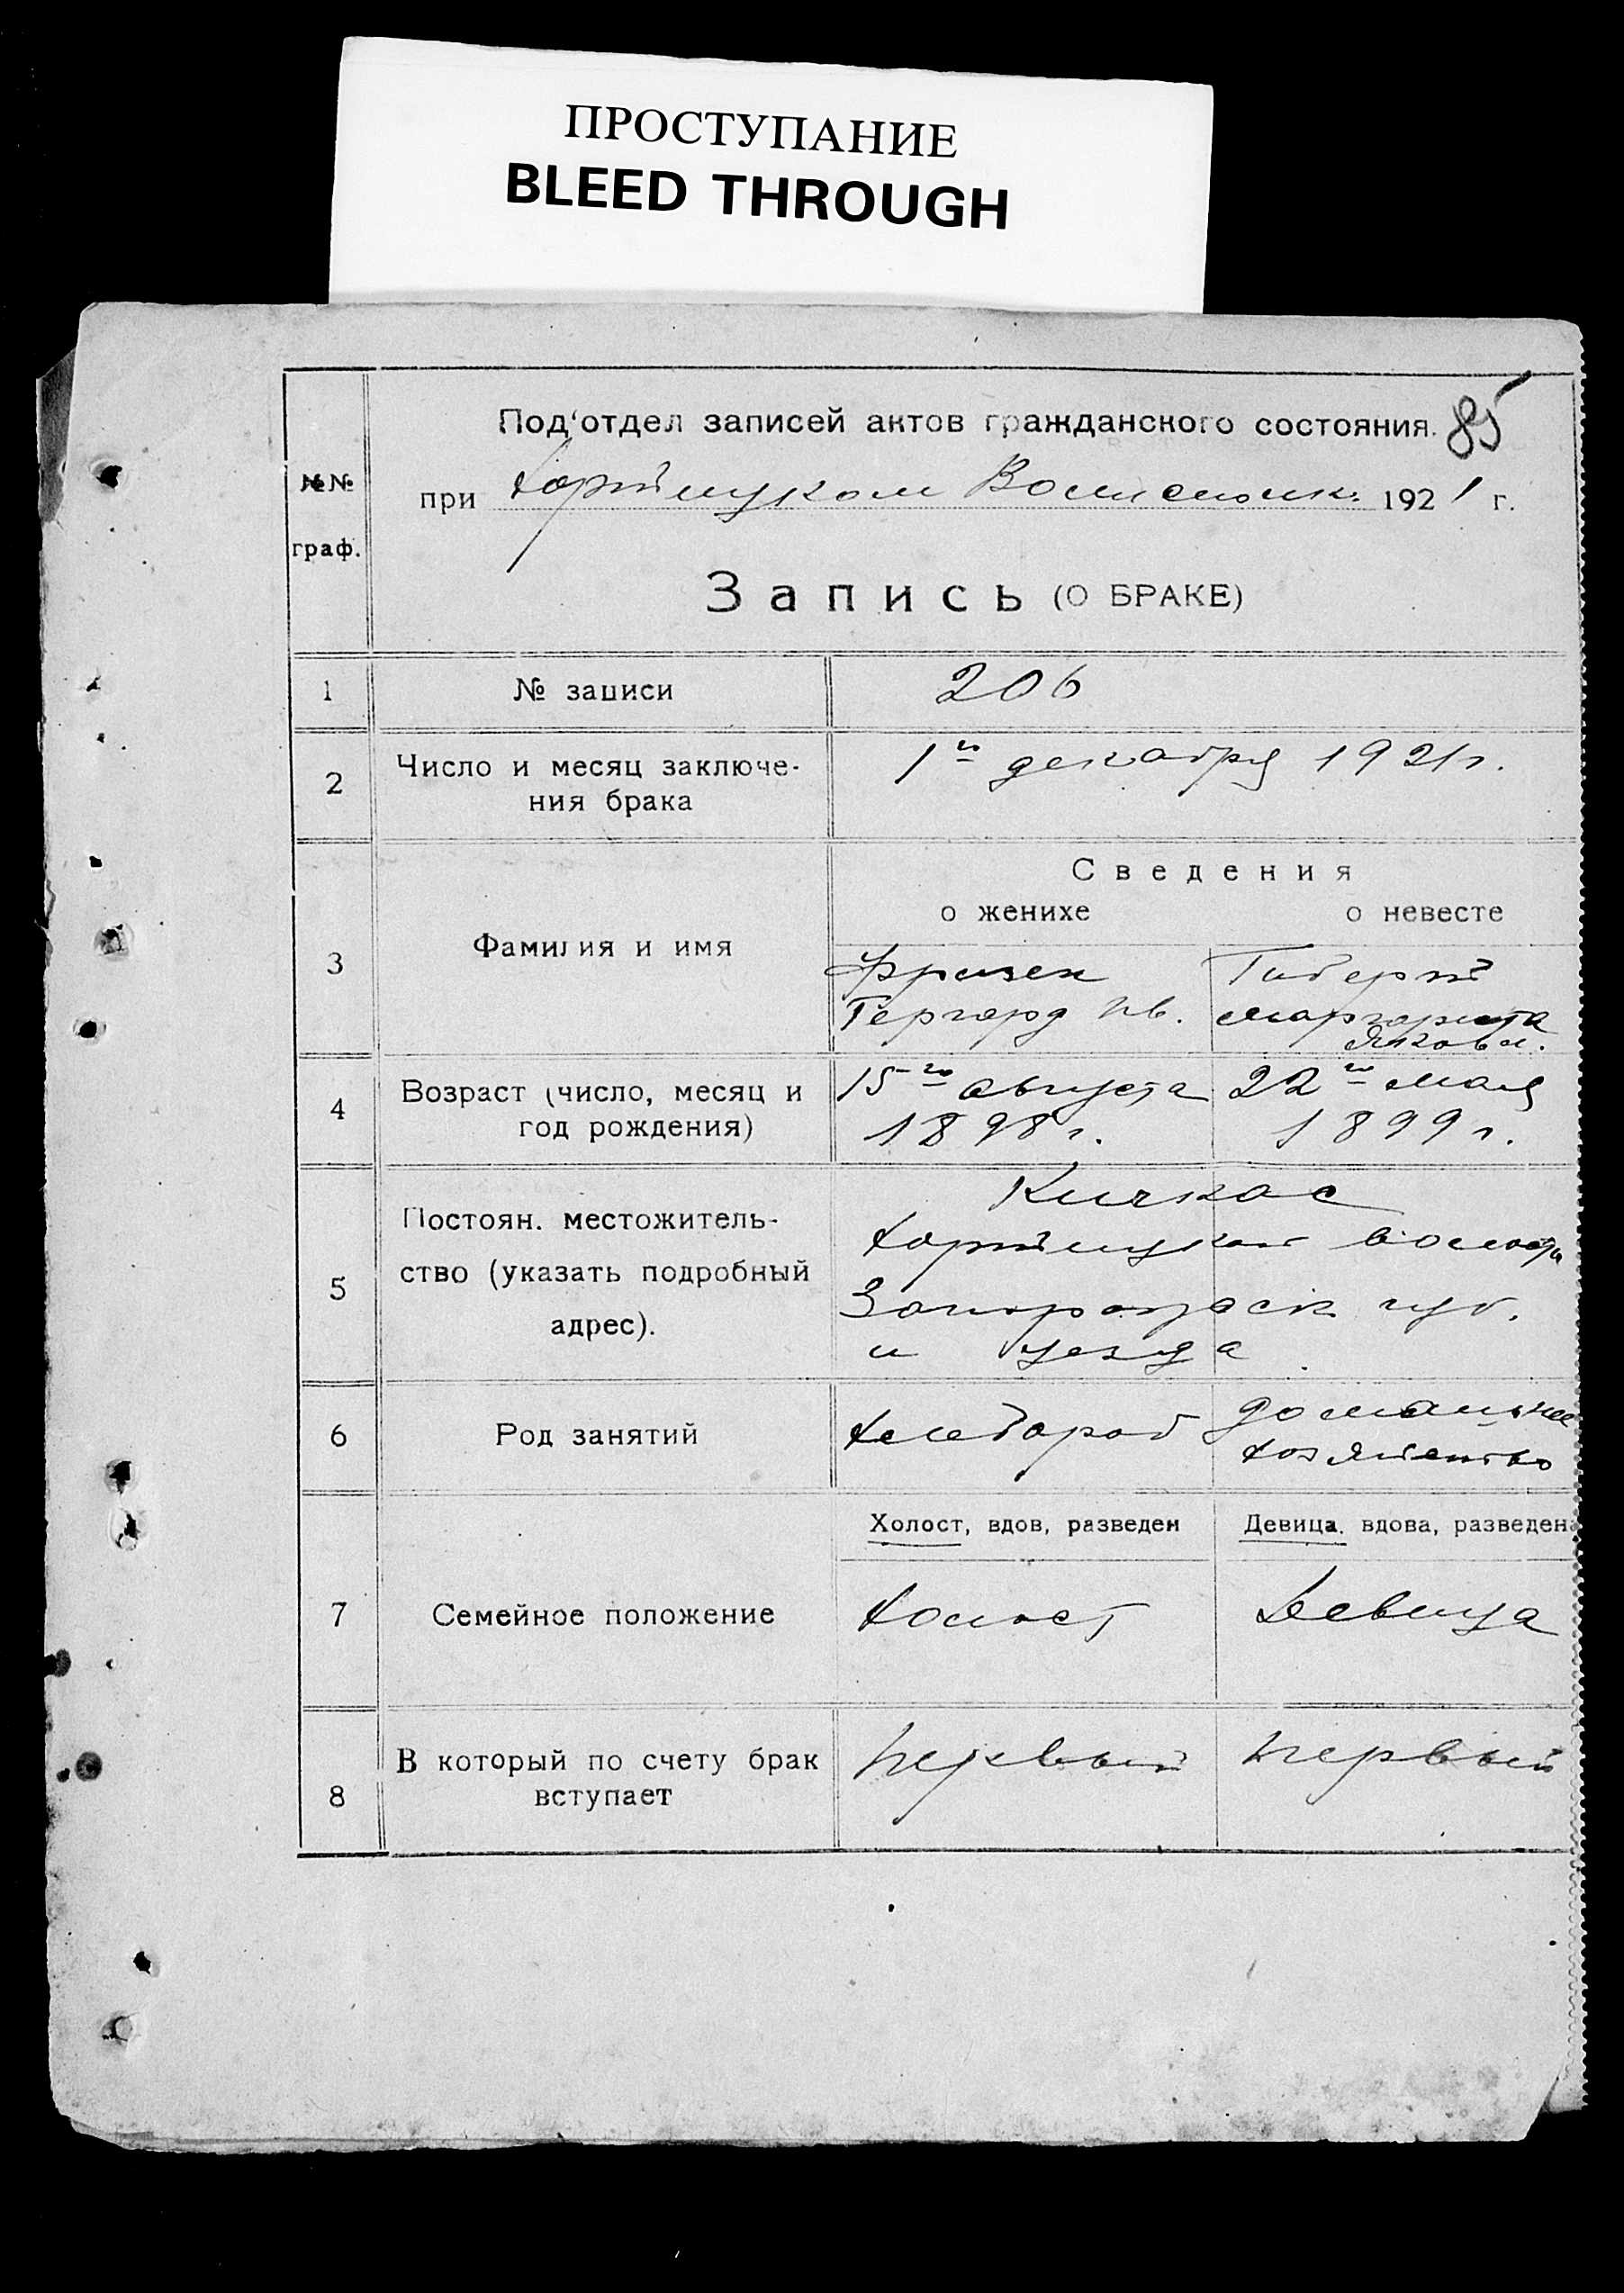 ПРОСТУПАНИЕ
BLEED THROUGH
Под'отдел записей актов гражданского состояния. 85
№№ граф.
при Хортицком Волисполк. 1921 г.
Запись (О БРАКЕ)
1 № записи 206
2 Число и месяц заключе-
ния брака 1го декабря 1921 г.
Сведения
о женихе о невесте
3 Фамилия и имя
Фризен Гиберт
Гергард Ив. Маргарита
Яковл.
4 Возраст (число, месяц и
год рождения)
15го августа 22го мая
1898 г. 1899 г.
5 Постоян. местожитель-
ство (указать подробный
адрес).
Кичкас
Хортицкой волости
Запорожск губ.
и уезда
6 Род занятий
Хлебороб домашнее
хозяйство
Холост, вдов, разведен Девица, вдова, разведена
7 Семейное положение
Холост Девица
8 В который по счету брак
вступает
первый первый